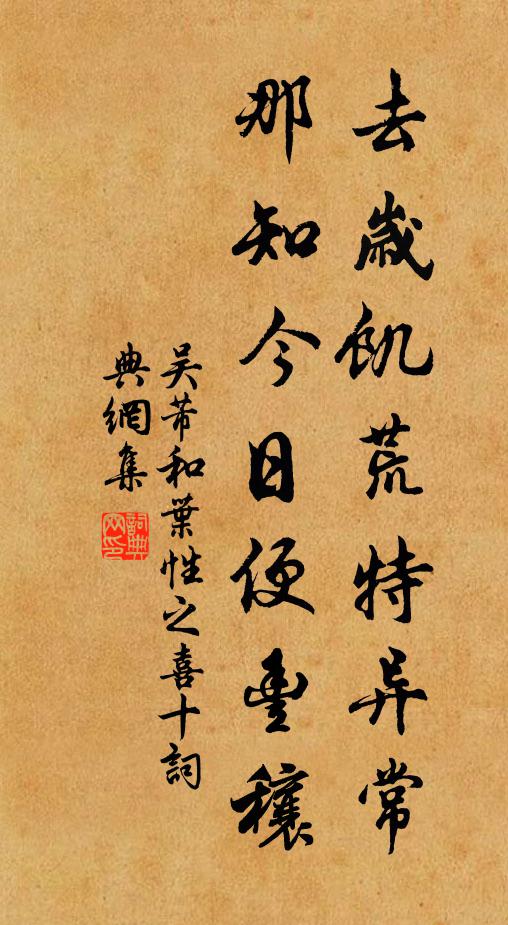 去歲飢荒特异常
那知今日便豊穰
吴芾和葉性之喜十詞
典網集
詞典
网印